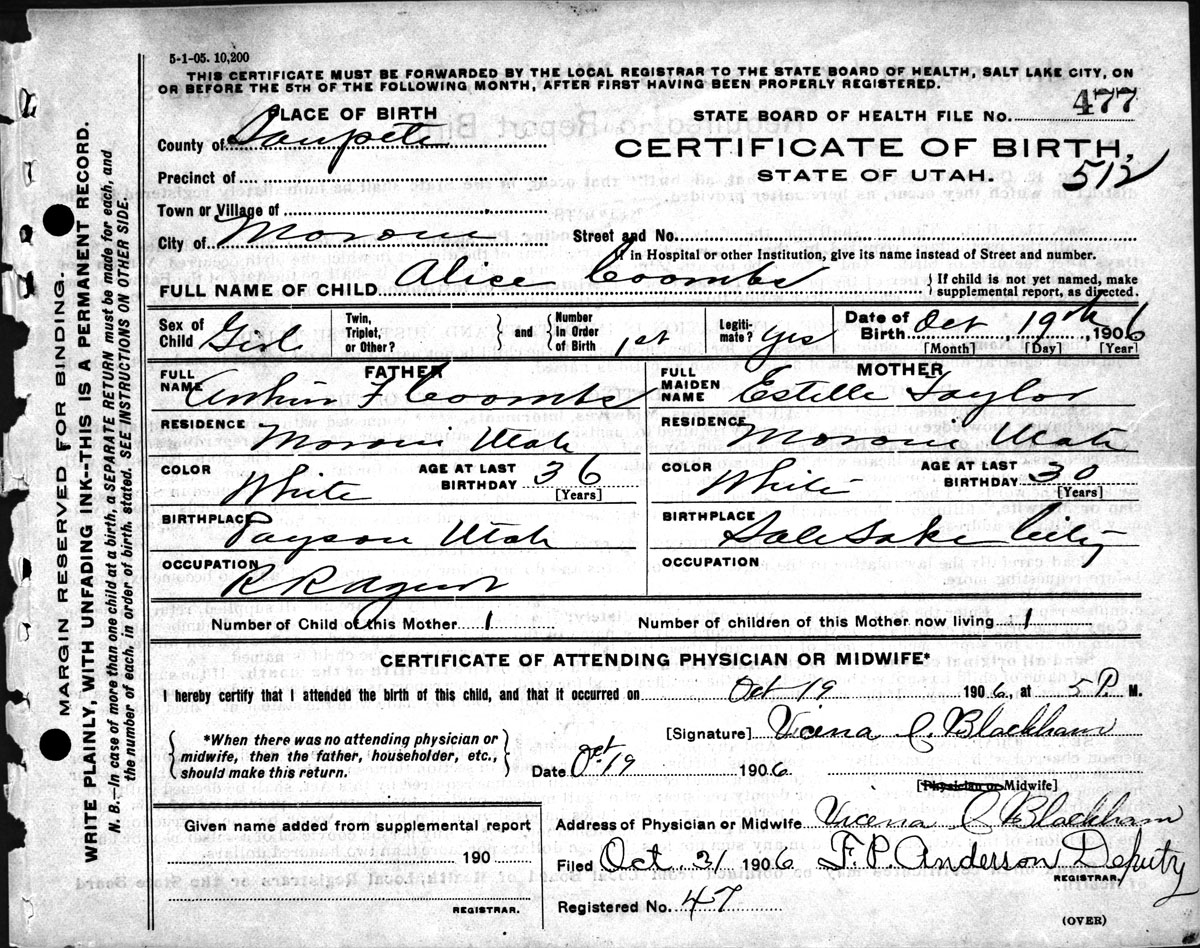 5-1-05. 10,200
THIS CERTIFICATE MUST BE FORWARDED BY THE LOCAL REGISTRAR TO THE STATE BOARD OF HEALTH, SALT LAKE CITY, ON
OR BEFORE THE 5TH OF THE FOLLOWING MONTH, AFTER FIRST HAVING BEEN PROPERLY REGISTERED.
PLACE OF BIRTH
STATE BOARD OF HEALTH FILE No. 477
County of Sanpete
CERTIFICATE OF BIRTH,
Precinct of
STATE OF UTAH. 512
Town or Village of
City of Moroni Street and No.
If in Hospital or other Institution, give its name instead of Street and number.
FULL NAME OF CHILD Alice Coombs { If child is not yet named, make supplemental report, as directed.
Sex of Child Girl Twin, Triplet, or Other? } and { Number In Order of Birth 1st Legiti-mate? yes Date of Birth Oct 19th, 1906
[Month] [Day] [Year]
FATHER MOTHER
FULL NAME F Coombs FULL MAIDEN NAME Estelle Taylor
RESIDENCE Moroni Utah RESIDENCE Moroni Utah
COLOR White AGE AT LAST BIRTHDAY 36 [Years] COLOR White AGE AT LAST BIRTHDAY 30 [Years]
BIRTHPLACE Payson Utah BIRTHPLACE Salt Lake City
OCCUPATION R R Agent OCCUPATION
Number of Child of this Mother 1 Number of children of this Mother now living 1
CERTIFICATE OF ATTENDING PHYSICIAN OR MIDWIFE*
I hereby certify that I attended the birth of this child, and that it occurred on Oct 19 1906, at 5 P. M.
[Signature] Vicena C. Blackham
{ *When there was no attending physician or midwife, then the father, householder, etc., should make this return. }
Date Oct. 19 1906
[Physician or Midwife]
Given name added from supplemental report
190
REGISTRAR.
Address of Physician or Midwife Vicena C Blackham
Filed Oct. 31 1906 F. P. Anderson Deputy
REGISTRAR.
Registered No. 47
(OVER)
MARGIN RESERVED FOR BINDING.
WRITE PLAINLY, WITH UNFADING INK--THIS IS A PERMANENT RECORD.
N. B.—In case of more than one child at a birth, a SEPARATE RETURN must be made for each, and
the number of each, in order of birth, stated. SEE INSTRUCTIONS ON OTHER SIDE.